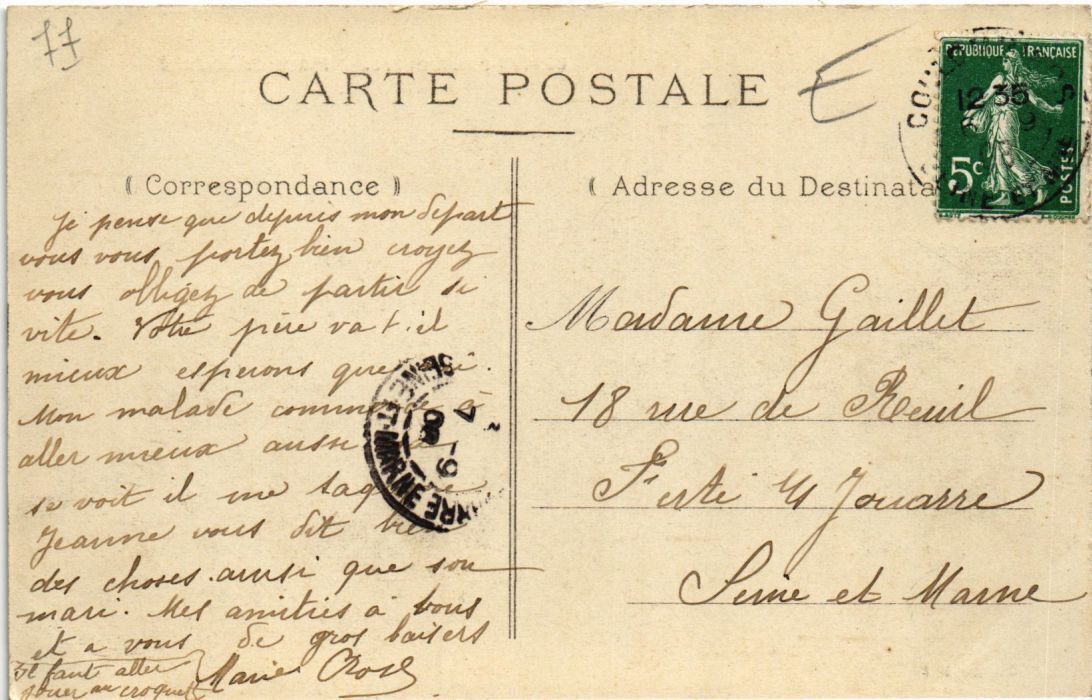 77
CARTE POSTALE
E
RÉPUBLIQUE FRANÇAISE
5c
POSTES
12 35
( Correspondance )
Je pense que depuis mon départ
vous vous portez bien croyez
vous obligez de partir si
vite. Votre père va t. il
mieux esperons que
Mon malade comm à
aller mieux aussi
se voit il me taq
Jeanne vous dit bie
des choses ainsi que son
mari. Mes amitiés a tous
et a vous de gros baisers
Marie
Il faut aller
jouer au croquet
SEINE-ET-MARNE
7 -9
08
( Adresse du Destinata
Madame Gaillet
18 rue de Reuil
Ferté s/s Jouarre
Seine et Marne